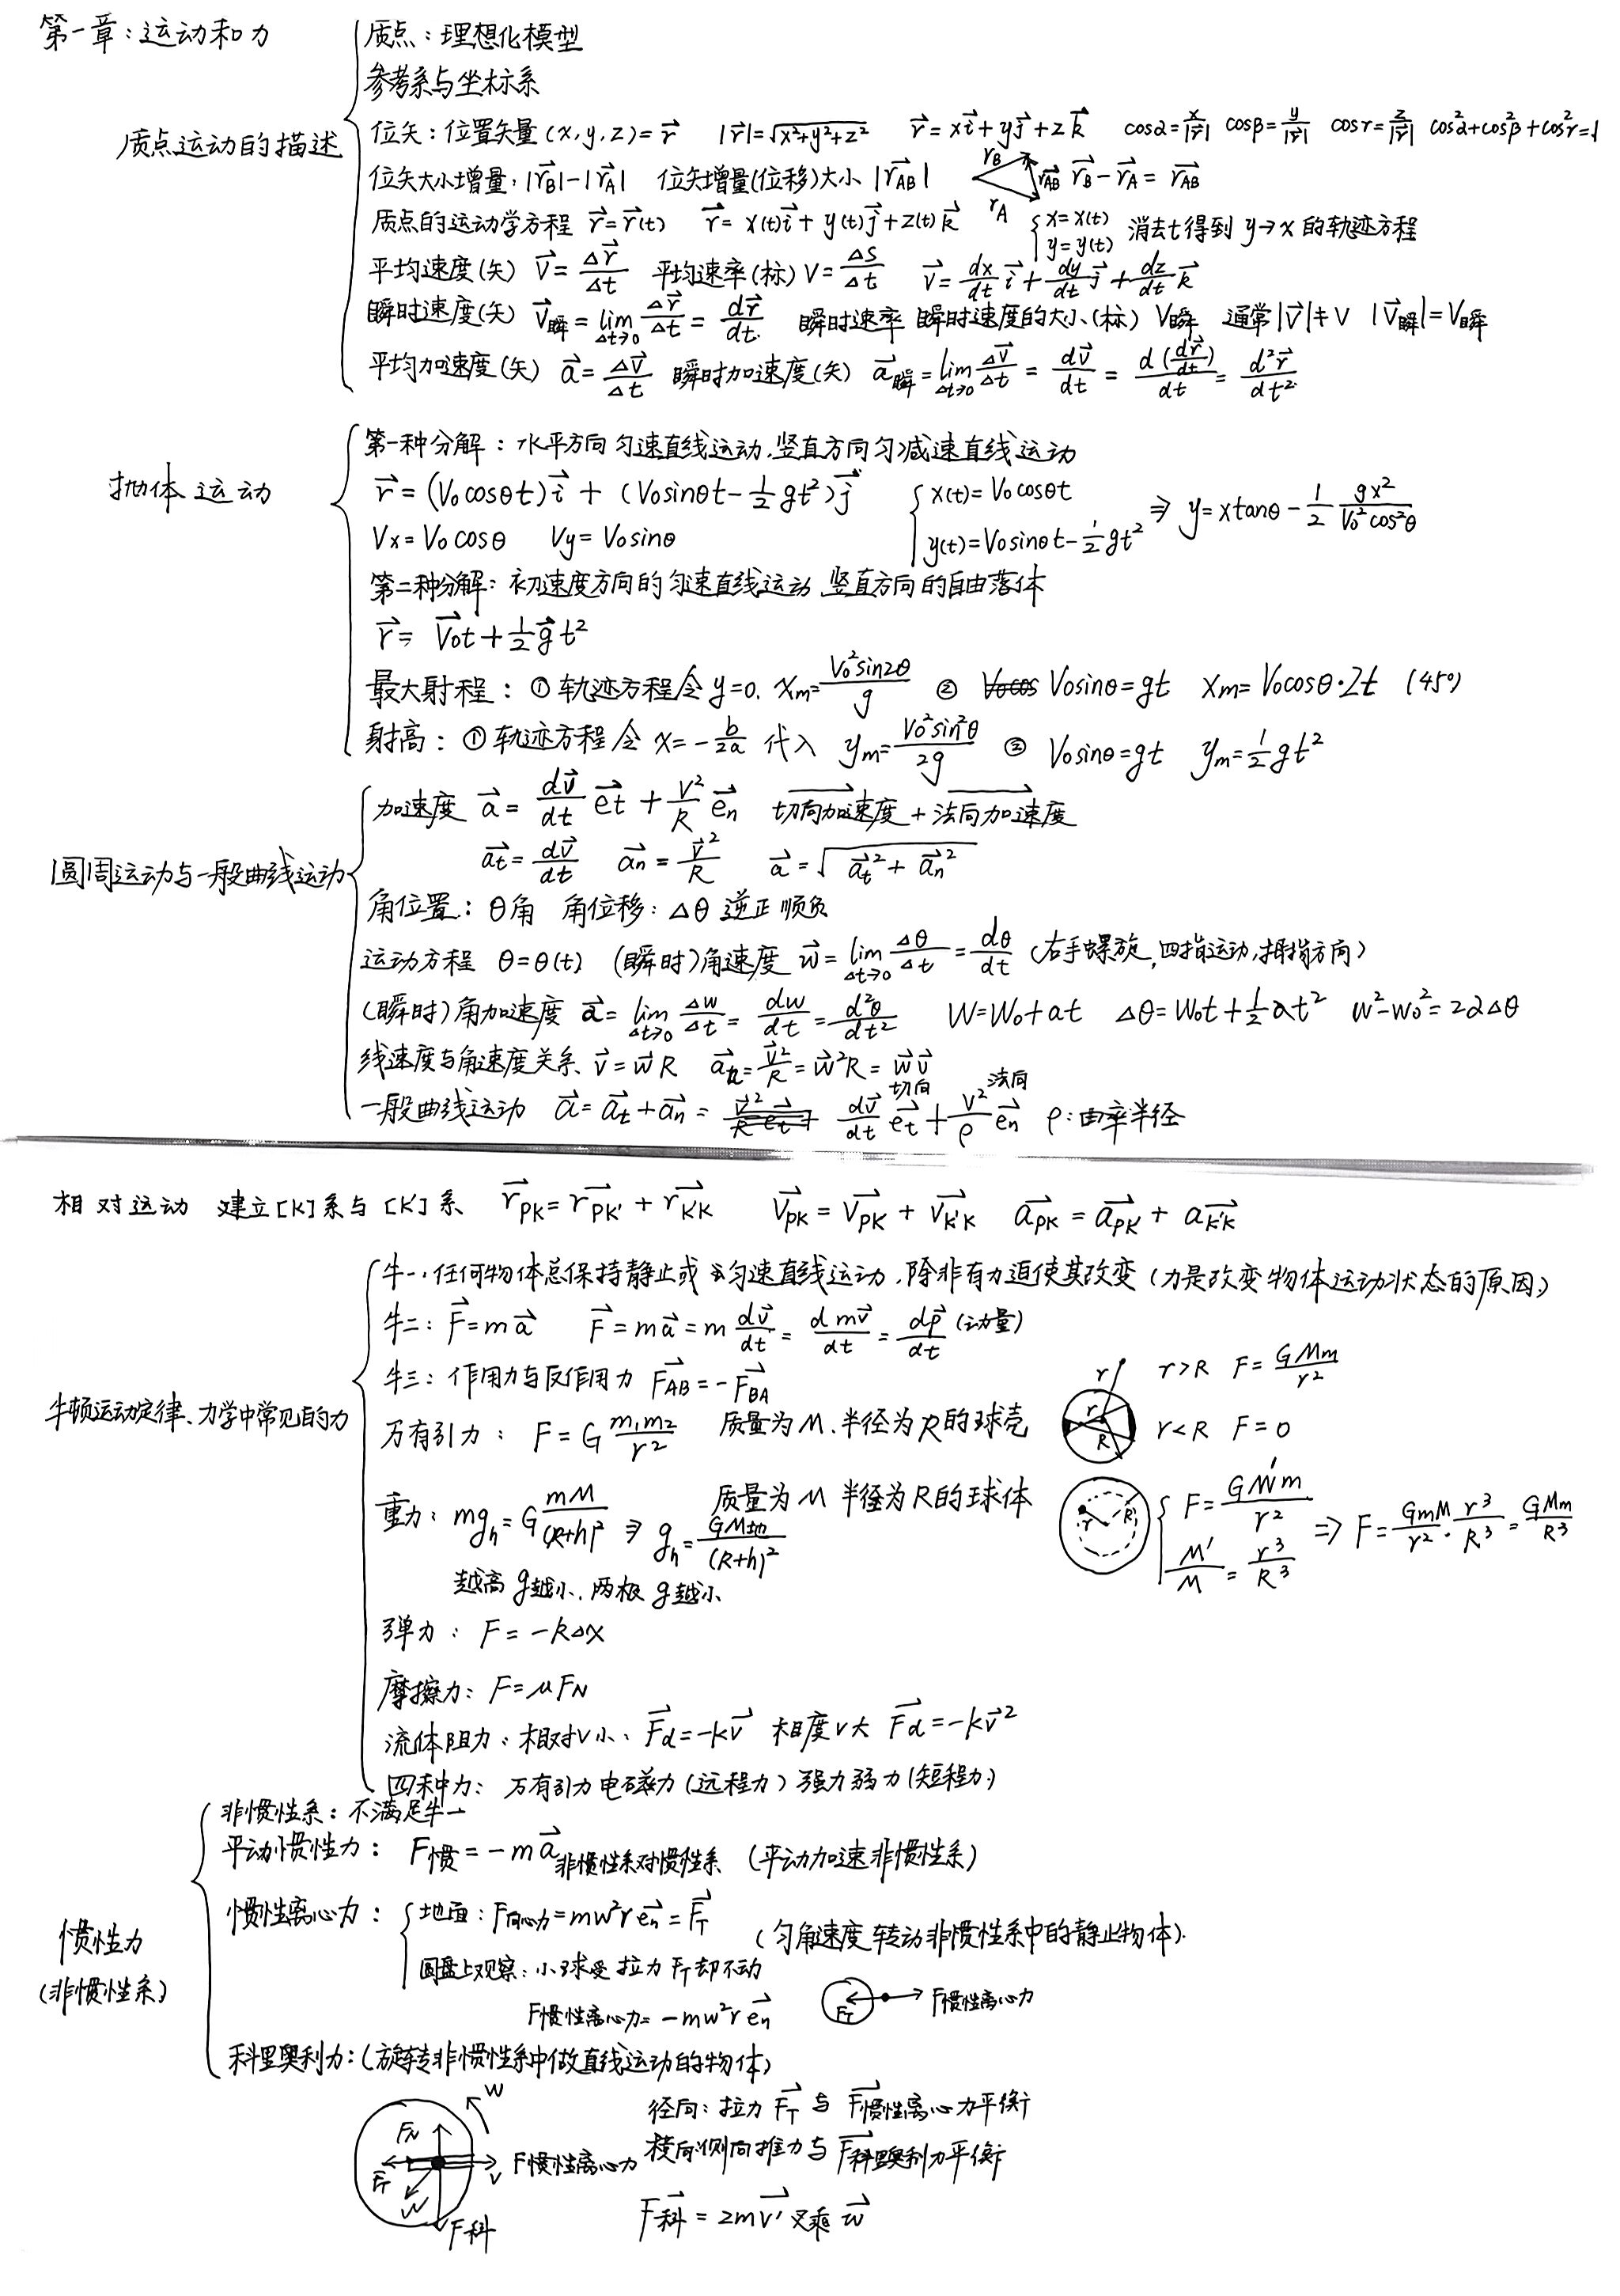 第一章：运动和力
质点运动的描述
质点：理想化模型
参考系与坐标系
位矢：位置矢量(x,y,z)=r⃗ |r⃗|=√(x²+y²+z²) r⃗=xi⃗+yj⃗+zk⃗ cosα=x/|r⃗| cosβ=y/|r⃗| cosr=z/|r⃗| cos²α+cos²β+cos²r=1
位矢大小增量：|r⃗B|-|r⃗A| 位矢增量(位移)大小 |r⃗AB| rB rA r⃗AB r⃗B-r⃗A=r⃗AB
质点的运动学方程 r⃗=r⃗(t) r⃗=x(t)i⃗+y(t)j⃗+z(t)k⃗ {x=x(t) y=y(t) 消去t得到 y→x 的轨迹方程
平均速度(矢) V⃗=Δr⃗/Δt 平均速率(标) V=ΔS/Δt v⃗=dx/dt i⃗+dy/dt j⃗+dz/dt k⃗
瞬时速度(矢) V⃗瞬=lim Δt→0 Δr⃗/Δt=dr⃗/dt. 瞬时速率 瞬时速度的大小(标) V瞬 通常|V⃗|≠V |V⃗瞬|=V瞬
平均加速度(矢) a⃗=ΔV⃗/Δt 瞬时加速度(矢) a⃗瞬=lim Δt→0 ΔV⃗/Δt=dv⃗/dt=d(dr⃗/dt)/dt=d²r⃗/dt²
抛体运动
第一种分解：水平方向匀速直线运动.竖直方向匀减速直线运动
r⃗=(V₀cosθt)i⃗+(V₀sinθt-½gt²)j⃗ {x(t)=V₀cosθt y(t)=V₀sinθt-½gt² ⇒ y=xtanθ-½ gx²/V₀²cos²θ
Vx=V₀cosθ Vy=V₀sinθ
第二种分解：初速度方向的匀速直线运动 竖直方向的自由落体
r⃗=V⃗₀t+½g⃗t²
最大射程：① 轨迹方程令y=0. xm=V₀²sin2θ/g ② V₀sinθ=gt xm=V₀cosθ·2t (45°)
射高：① 轨迹方程令 x=-b/2a 代入 ym=V₀²sin²θ/2g ② V₀sinθ=gt ym=½gt²
圆周运动与一般曲线运动
加速度 a⃗=dv⃗/dt e⃗t+V²/R e⃗n 切向加速度+法向加速度
a⃗t=dv⃗/dt a⃗n=v⃗²/R a⃗=√(a⃗t²+a⃗n²)
角位置：θ角 角位移：Δθ 逆正顺负
运动方程 θ=θ(t) (瞬时)角速度 w⃗=lim Δt→0 Δθ/Δt=dθ/dt (右手螺旋,四指运动,拇指方向)
(瞬时)角加速度 α⃗=lim Δt→0 Δw/Δt=dw/dt=d²θ/dt² W=W₀+αt Δθ=W₀t+½αt² w²-w₀²=2αΔθ
线速度与角速度关系 v⃗=w⃗R a⃗n=v⃗²/R=w⃗²R=w⃗v⃗
一般曲线运动 a⃗=a⃗t+a⃗n= dv⃗/dt e⃗t+V²/ρ e⃗n 切向 法向 ρ:曲率半径
相对运动 建立[K]系与[K']系 r⃗PK=r⃗PK'+r⃗K'K V⃗PK=V⃗PK'+V⃗K'K a⃗PK=a⃗PK'+a⃗K'K
牛顿运动定律、力学中常见的力
牛一：任何物体总保持静止或匀速直线运动,除非有力迫使其改变(力是改变物体运动状态的原因)
牛二：F⃗=ma⃗ F⃗=ma⃗=m dv⃗/dt=dmv⃗/dt=dp⃗/dt (动量)
牛三：作用力与反作用力 F⃗AB=-F⃗BA
万有引力：F=G m₁m₂/r² 质量为M.半径为R的球壳 r r R r>R F=GMm/r² r<R F=0
重力：mgh=G mM/(R+h)² ⇒ gh=GM地/(R+h)² 质量为M 半径为R的球体 r R {F=GM'm/r² M'/M=r³/R³ ⇒ F=GmM/r²·r³/R³=GMm/R³
越高g越小.两极g越小
弹力：F=-kΔx
摩擦力：F=μFN
流体阻力：相对v小、F⃗d=-kv⃗ 相度v大 F⃗d=-kv⃗²
四种力：万有引力 电磁力(远程力) 强力 弱力(短程力)
惯性力
(非惯性系)
非惯性系：不满足牛一
平动惯性力：F惯=-ma⃗非惯性系对惯性系 (平动加速非惯性系)
惯性离心力：{地面：F向心力=mw²re⃗n=F⃗T (匀角速度转动非惯性系中的静止物体).
圆盘上观察：小球受拉力FT却不动
F惯性离心力=-mw²re⃗n FT F惯性离心力
科里奥利力：(旋转非惯性系中做直线运动的物体)
W FN FT W V F惯性离心力 F科
径向：拉力F⃗T与F⃗惯性离心力平衡
横向：侧向推力与F⃗科里奥利力平衡
F⃗科=2mv⃗' 叉乘 w⃗